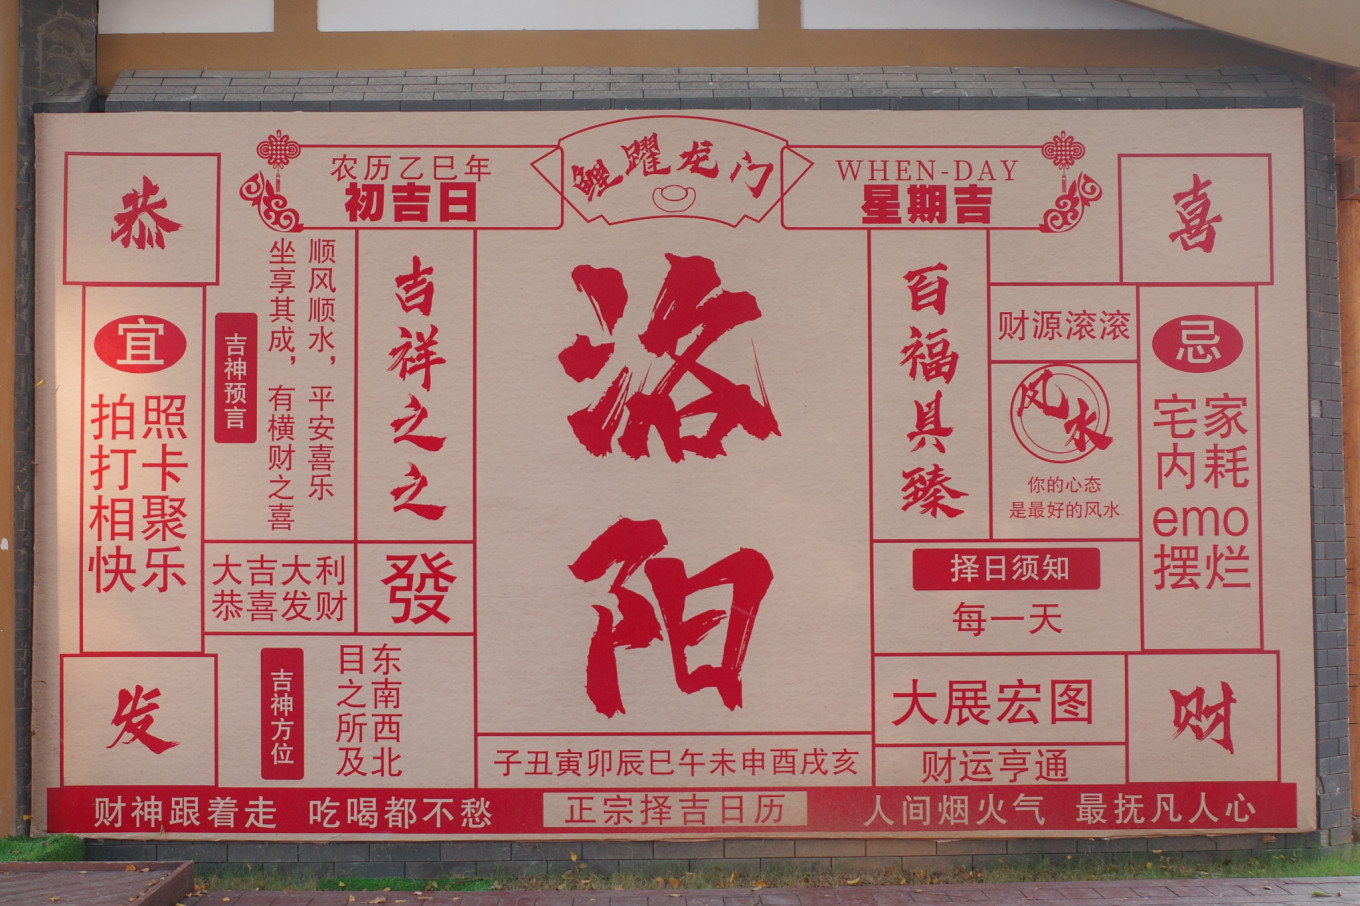 恭
农历乙巳年
初吉日
鲤躍龙门
WHEN-DAY
星期吉
喜
宜
照卡聚乐
拍打相快
吉神预言
顺风顺水，平安喜乐
坐享其成，有横财之喜
吉祥之之
洛阳
百福具臻
财源滚滚
风水
你的心态
是最好的风水
忌
家耗
宅内
emo
摆烂
大吉大利
恭喜发财
發
择日须知
每一天
发
吉神方位
东南西北
目之所及
子丑寅卯辰巳午未申酉戌亥
大展宏图
财运亨通
财
财神跟着走 吃喝都不愁
正宗择吉日历
人间烟火气 最抚凡人心